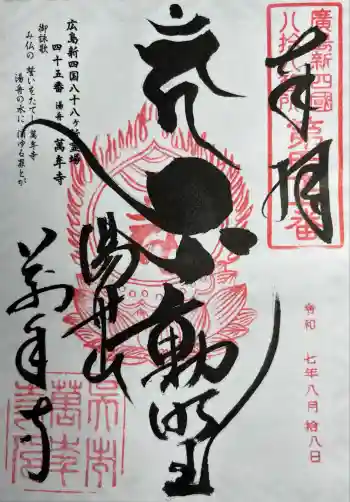 奉拝
廣島新四國
八拾八ヶ所
令和 七年八月拾八日
不動明王
湯舟山
萬年寺
広島新四国八十八ヶ所霊場
四十五番 湯舟 萬年寺
御詠歌
み仏の 誓いをたてし 萬年寺
湯舟の水に 消ゆる罪とが